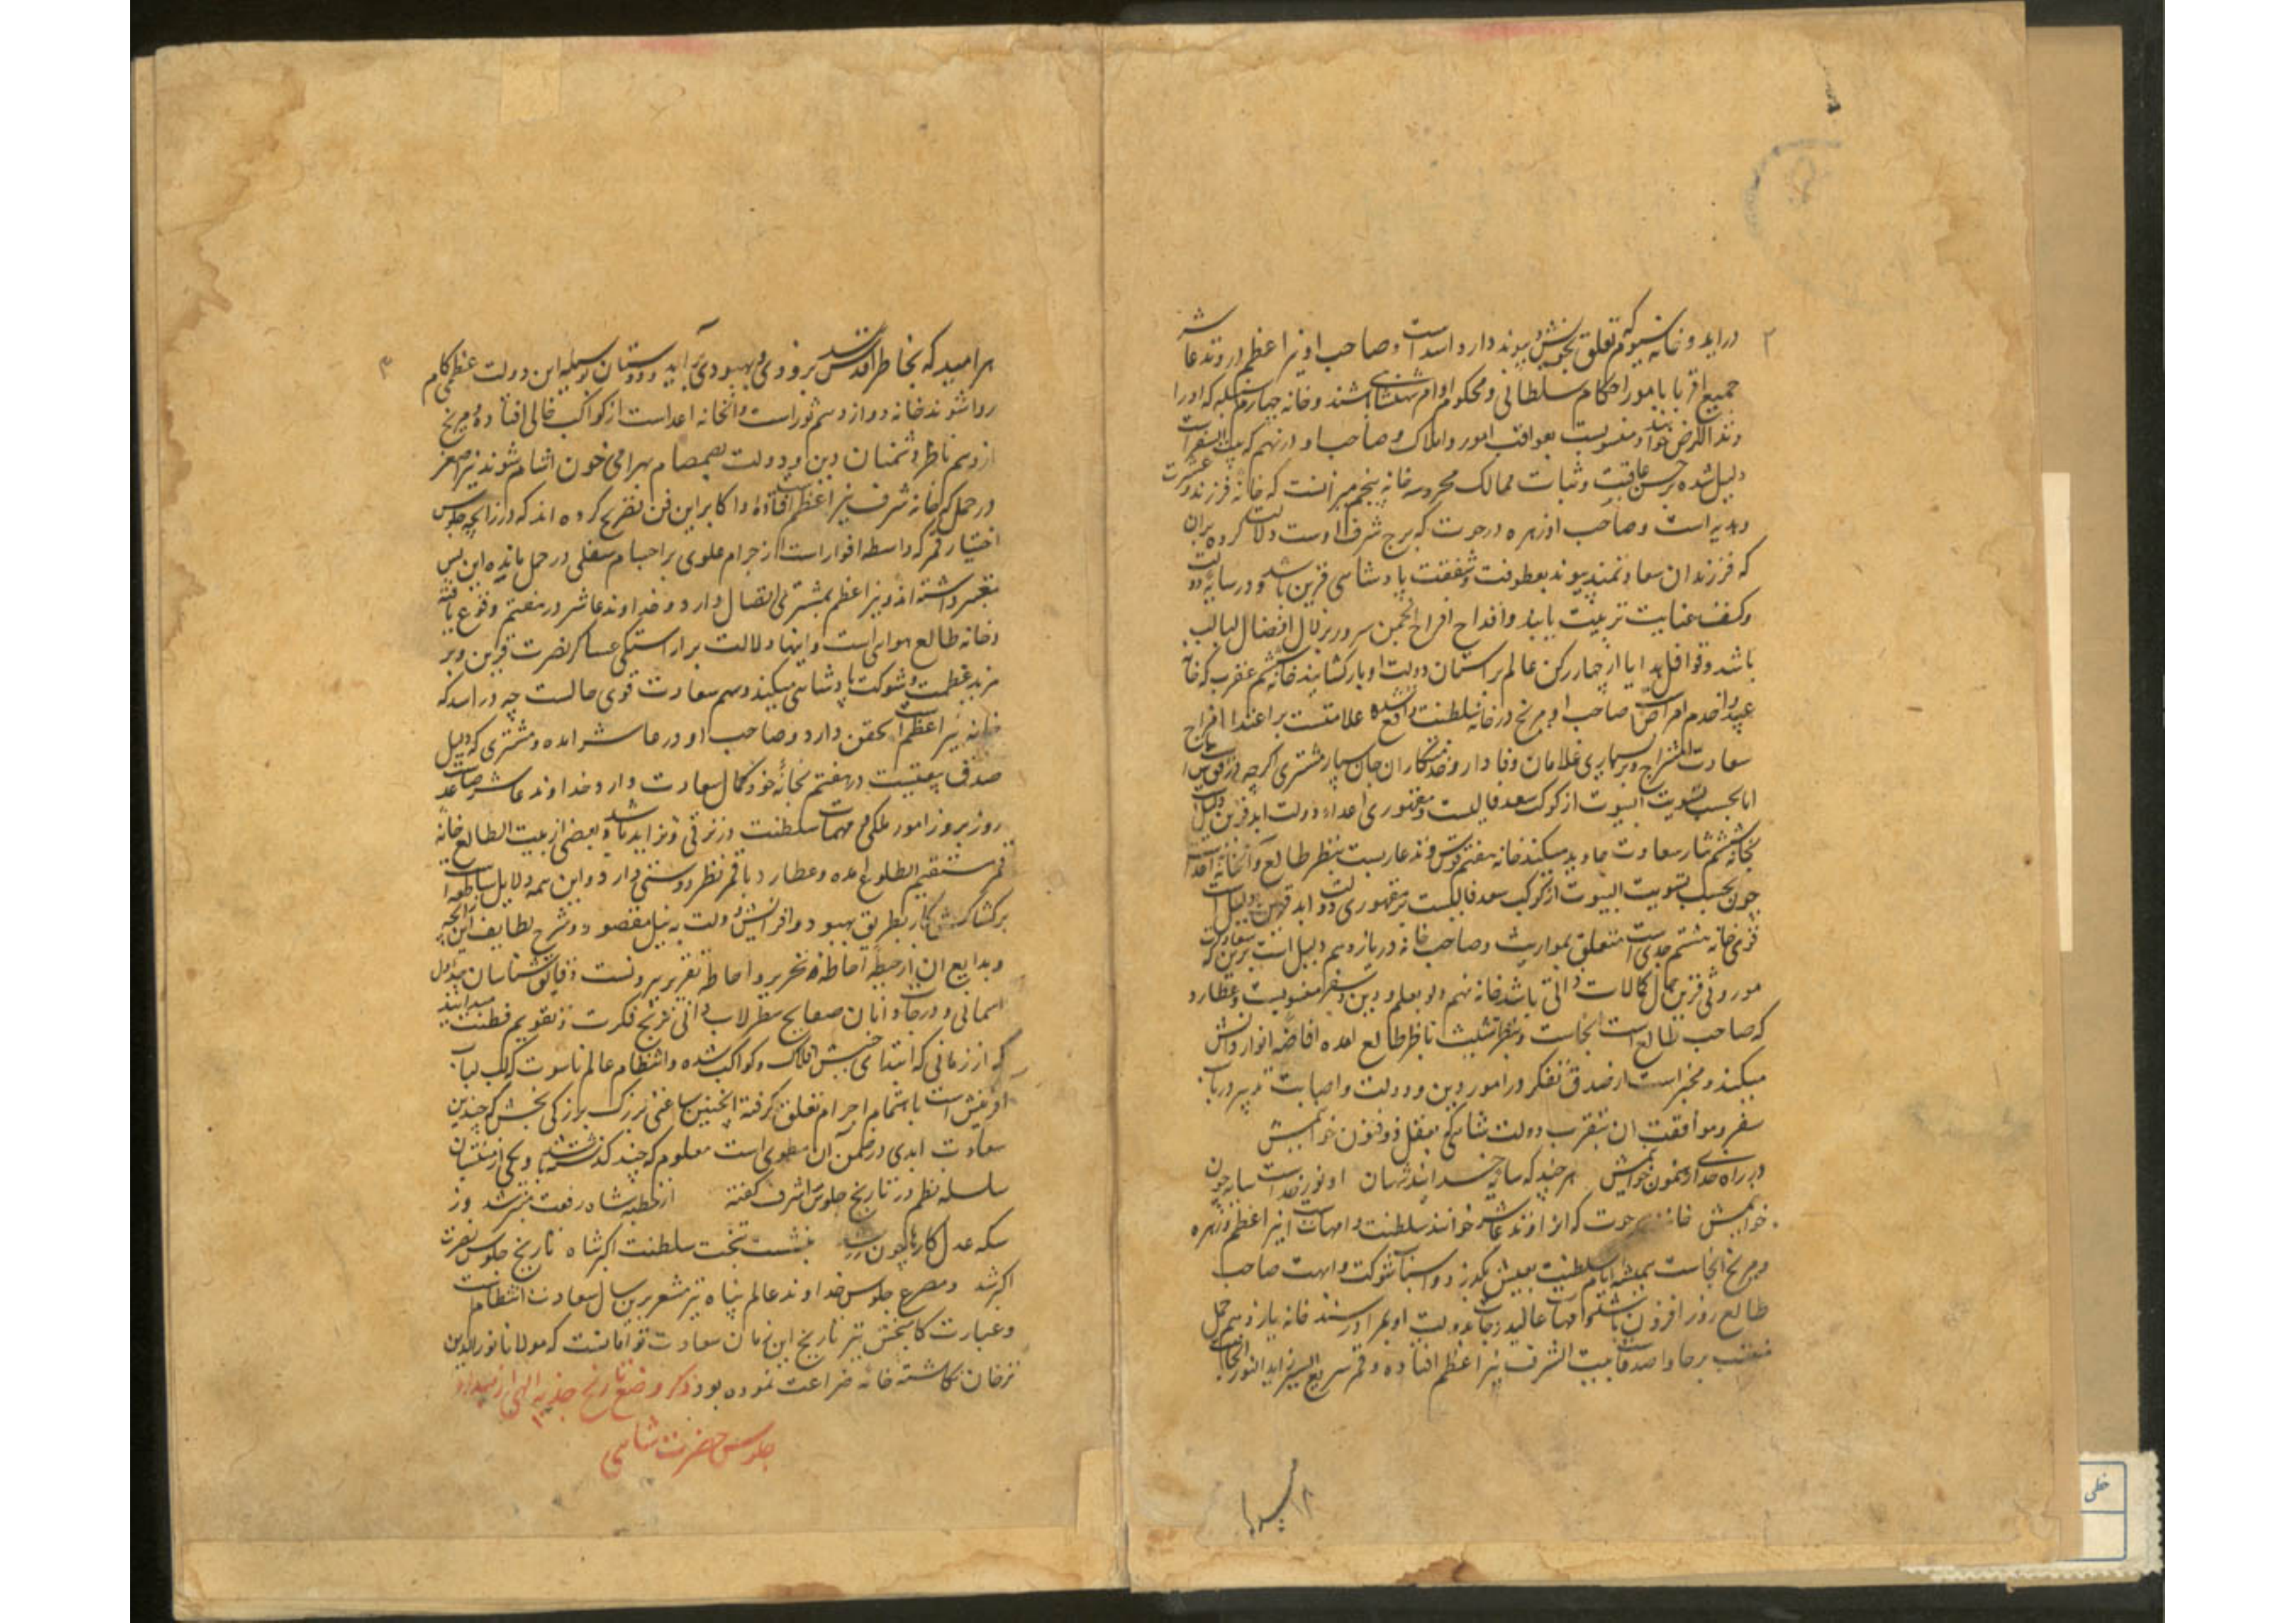 ۲
دراید و خانه سیوم که تعلق بخویش و پیوند دارد اسد است و صاحب او نیر اعظم در وتد عاشر
جمیع اقربا بامور احکام سلطانی و محکوم اوامر شاهنشاهی باشند و خانه چهارم سنبله که اورا
وتد الارض خوانند و منسوبست بعواقب امور و املاک و صاحب او در نهم که بیت السفر است
دلیل شده بر حسن عاقبت و ثبات ممالک محروسه خانه پنجم میزانست که خانه فرزند و عشرت
و هدیه است و صاحب او زهره در حوت که برج شرف اوست دلالت کرده بران
که فرزندان سعادتمند پیوند بعطوفت و شفقت پادشاهی قرین باشد و در سایه دولت
و کنف عنایت تربیت یابند و اقداح افراح انجمن سرور بزلال افضال لبالب
باشد و قوافل هدایا از چهار رکن عالم بر آستان دولت او بار گشایند خانه ششم عقرب که خانه
عبید و خدم امراض صاحب او مریخ در خانه سلطنت واقع شده علامتست بر اعتدال مزاج
سعادت امتزاج و بر بسیاری غلامان وفادار و خدمتکاران جان سپار مشتری اگرچه در قوس است
اما بحسب تسویت البیوت از کوکب سعد خالیست و مقهوری اعداء دولت ابد قرین دلیل
بخانه ششم نثار سعادت جاوید میکند خانه هفتم قوس وتد غاربست بنظر طالع و آنخانه
چون بحسب تسویت البیوت از کوکب سعد خالیست بر مقهوری دولت ابد قرین دلیل است
قوی خانه هشتم جدی است متعلق بمواریث و صاحب خانه در یازدهم دلیل است برین که سعادت
موروثی قرین کمال کمالات ذاتی باشد خانه نهم دلو بعلم و دین و سفر منسوبست و عطارد
که صاحب طالع است آنجاست و بنظر تثلیث ناظر طالع آمده افاضه انوار دانش
میکند و مخبر است از صدق تفکر در امور دین و دولت و اصابت تدبیر در باب
سفر و موافقت آن بتقرب دولت شاهی که بعقل ذوفنون خواهیمش
در راه خدا رهنمون خواهیمش هر چند که سایه خدایند شهان او نور خداست سایه چون
خواهیمش خانه حوت که انرا وتد عاشر خوانند سلطنت و امهات نیر اعظم و زهره
و مریخ آنجاست همیشه ایام سلطنت بعیش گذرد و اسباب شوکت و ابهت صاحب
طالع روز افزون باشد و امهات عالیه درجات بدولت او بمراد رسند خانه یازدهم حمل
منتسب برجا و اصدقا بیت الشرف نیر اعظم افتاده و قمر سریع السیر زاید النور آنجاست
۳
هر امید که بخاطر اقدس رسد بزودی و بهبودی برآید و دوستان بوسیله این دولت عظمی کام
روا شوند خانه دوازدهم ثور است و آنخانه اعداست از کواکب خالی افتاده و مریخ
از دهم ناظر دشمنان دین و دولت بصمصام بهرامی خون آشام شوند نیر اصغر
در حمل که خانه شرف نیر اعظم است افتاده و اکابر این فن تصریح کرده اند که در زایچه جلوس
اختیار قمر که واسطه انوار است از اجرام علوی بر اجسام سفلی در حمل باید این بس
معتبر داشته اند و نیر اعظم بمشتری اتصال دارد و خداوند عاشر در هفتم وقوع یافته
و خانه طالع هوایی است و اینها دلالت بر آراستگی عساکر نصرت قرین و بر
مزید عظمت و شوکت پادشاهی میکند و سهم سعادت قوی حالست چه در اسد که
خانه نیر اعظم است تحقق دارد و صاحب او در عاشر آمده و مشتری که دلیل
صدق بیعتست در هفتم بخانه خود کمال سعادت دارد و خداوند عاشر صاعد است
روز بروز امور ملکی و مهمات سلطنت در ترقی و تزاید باشد و بعضی از بیت الطالع خانه
قمر مستقیم الطلوع آمده و عطارد با قمر نظر دوستی دارد و این همه دلایل ساطعه است
بر گشایش کار بطریق بهبود و افزایش دولت به نیل مقصود و شرح لطایف این زایچه
و بدایع آن از حیطه احاطه تحریر و احاطه تقریر بیرونست دقایق شناسان جداول
آسمانی و درجات دانان صفایح سطرلاب دانی بزیج فکرت و تقویم فطنت میدانند
که از زمانی که ابتدای جنبش افلاک و کواکب شده و انتظام عالم ناسوت که لب لباب
آفرینش است باهتمام اجرام تعلق گرفته اینچنین ساعتی بزرگ بزرگی بخش که چندین
سعادت ابدی در ضمن آن مطوی است معلوم که چند گذشته باشد و یکی از منتسبان
سلسله نظم در تاریخ جلوس اشرف گفته از خطبه شاه رفعت منبر شد وز
سکه عدل کارها چون زر شد بنشست بتخت سلطنت اکبر شاه تاریخ جلوس نصرت
اکبر شد و مصرع جلوس خداوند عالم پناه نیز مشعر برین سال سعادت انتظامست
و عبارت کامبخش نیز تاریخ این زمان سعادت توامانست که مولانا نورالدین
ترخان نگاشته خامه ضراعت نموده بود ذکر وضع تاریخ جدید الهی از مبداء
جلوس حضرت شاهی
خطی